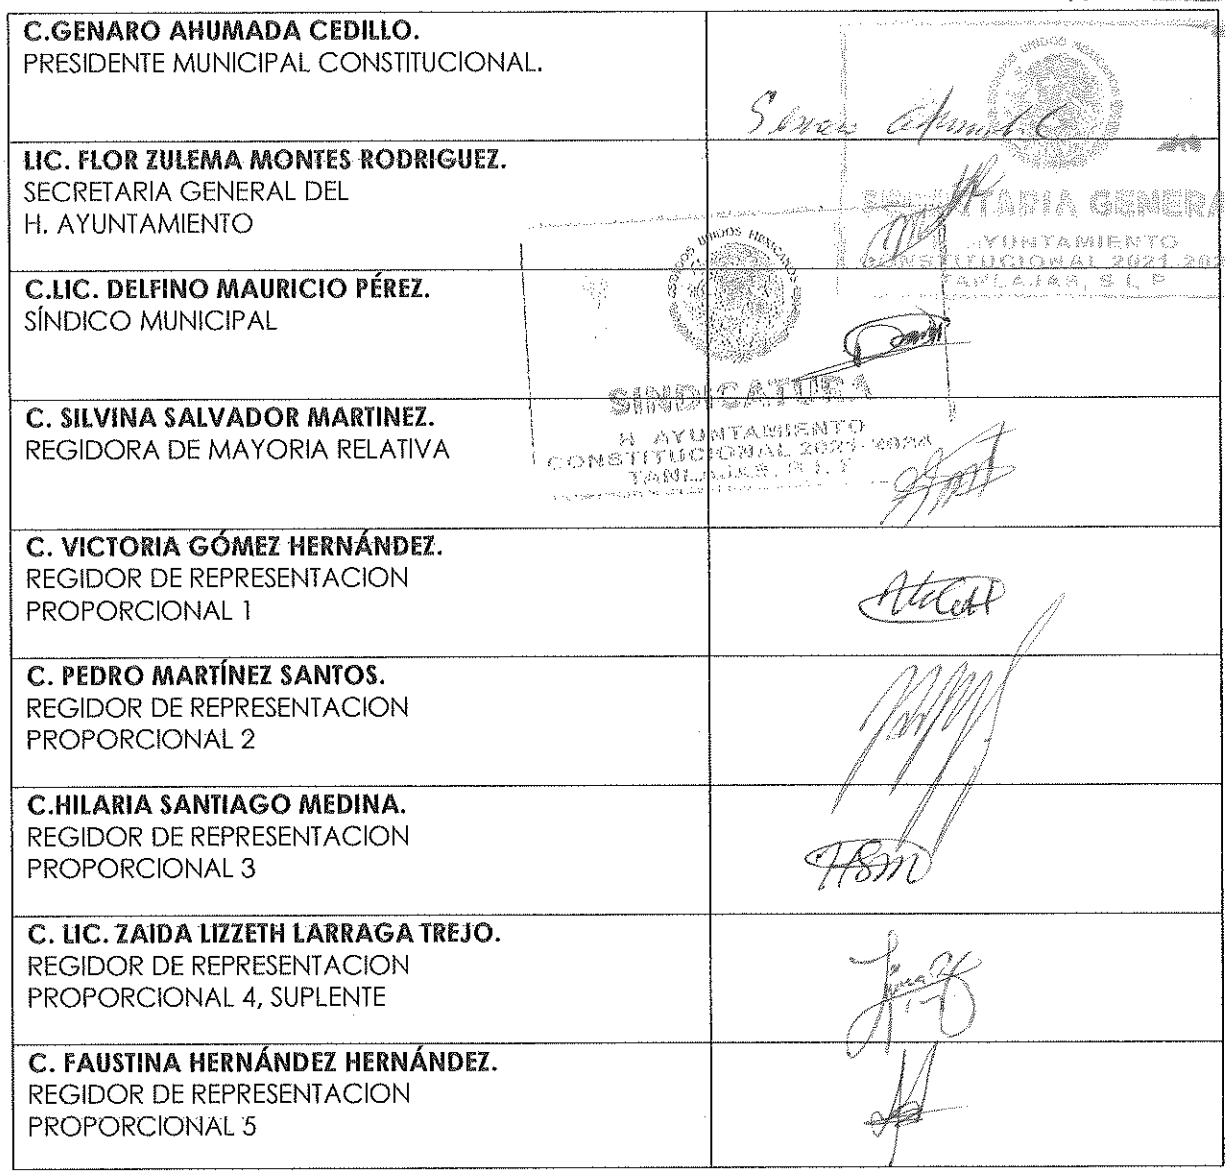 C.GENARO AHUMADA CEDILLO.
PRESIDENTE MUNICIPAL CONSTITUCIONAL.
LIC. FLOR ZULEMA MONTES RODRIGUEZ.
SECRETARIA GENERAL DEL
H. AYUNTAMIENTO
UNIDOS MEXICANOS
GENERA
AYUNTAMIENTO
CONSTITUCIONAL 2021-202
TANLAJAS, S.L.P.
C.LIC. DELFINO MAURICIO PÉREZ.
SÍNDICO MUNICIPAL
ESTADOS UNIDOS MEXICANOS
SINDICATURA
H. AYUNTAMIENTO
CONSTITUCIONAL 2021-2024
TANLAJAS, S.L.P.
C. SILVINA SALVADOR MARTINEZ.
REGIDORA DE MAYORIA RELATIVA
C. VICTORIA GÓMEZ HERNÁNDEZ.
REGIDOR DE REPRESENTACION
PROPORCIONAL 1
C. PEDRO MARTÍNEZ SANTOS.
REGIDOR DE REPRESENTACION
PROPORCIONAL 2
C.HILARIA SANTIAGO MEDINA.
REGIDOR DE REPRESENTACION
PROPORCIONAL 3
HSM
C. LIC. ZAIDA LIZZETH LARRAGA TREJO.
REGIDOR DE REPRESENTACION
PROPORCIONAL 4, SUPLENTE
C. FAUSTINA HERNÁNDEZ HERNÁNDEZ.
REGIDOR DE REPRESENTACION
PROPORCIONAL 5